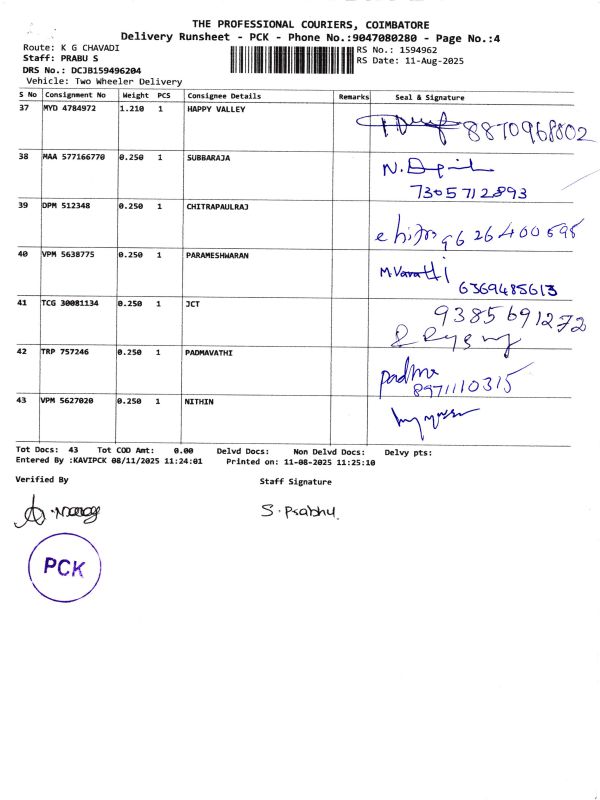 THE PROFESSIONAL COURIERS, COIMBATORE
Delivery Runsheet - PCK - Phone No.:9047080280 - Page No.:4
Route: K G CHAVADI
RS No.: 1594962
Staff: PRABU S
RS Date: 11-Aug-2025
DRS No.: DCJB159496204
Vehicle: Two Wheeler Delivery
S No Consignment No Weight PCS Consignee Details Remarks Seal & Signature
37 MYD 4784972 1.210 1 HAPPY VALLEY
8870968802
38 MAA 577166770 0.250 1 SUBBARAJA
7305712893
39 DPM 512348 0.250 1 CHITRAPAULRAJ
9626400595
40 VPM 5638775 0.250 1 PARAMESHWARAN
M.Varathi
6369485613
41 TCG 30081134 0.250 1 JCT
9385691272
42 TRP 757246 0.250 1 PADMAVATHI
padma
8971110315
43 VPM 5627020 0.250 1 NITHIN
Tot Docs: 43 Tot COD Amt: 0.00 Delvd Docs: Non Delvd Docs: Delvy pts:
Entered By :KAVIPCK 08/11/2025 11:24:01 Printed on: 11-08-2025 11:25:10
Verified By Staff Signature
S. Prabhu.
PCK